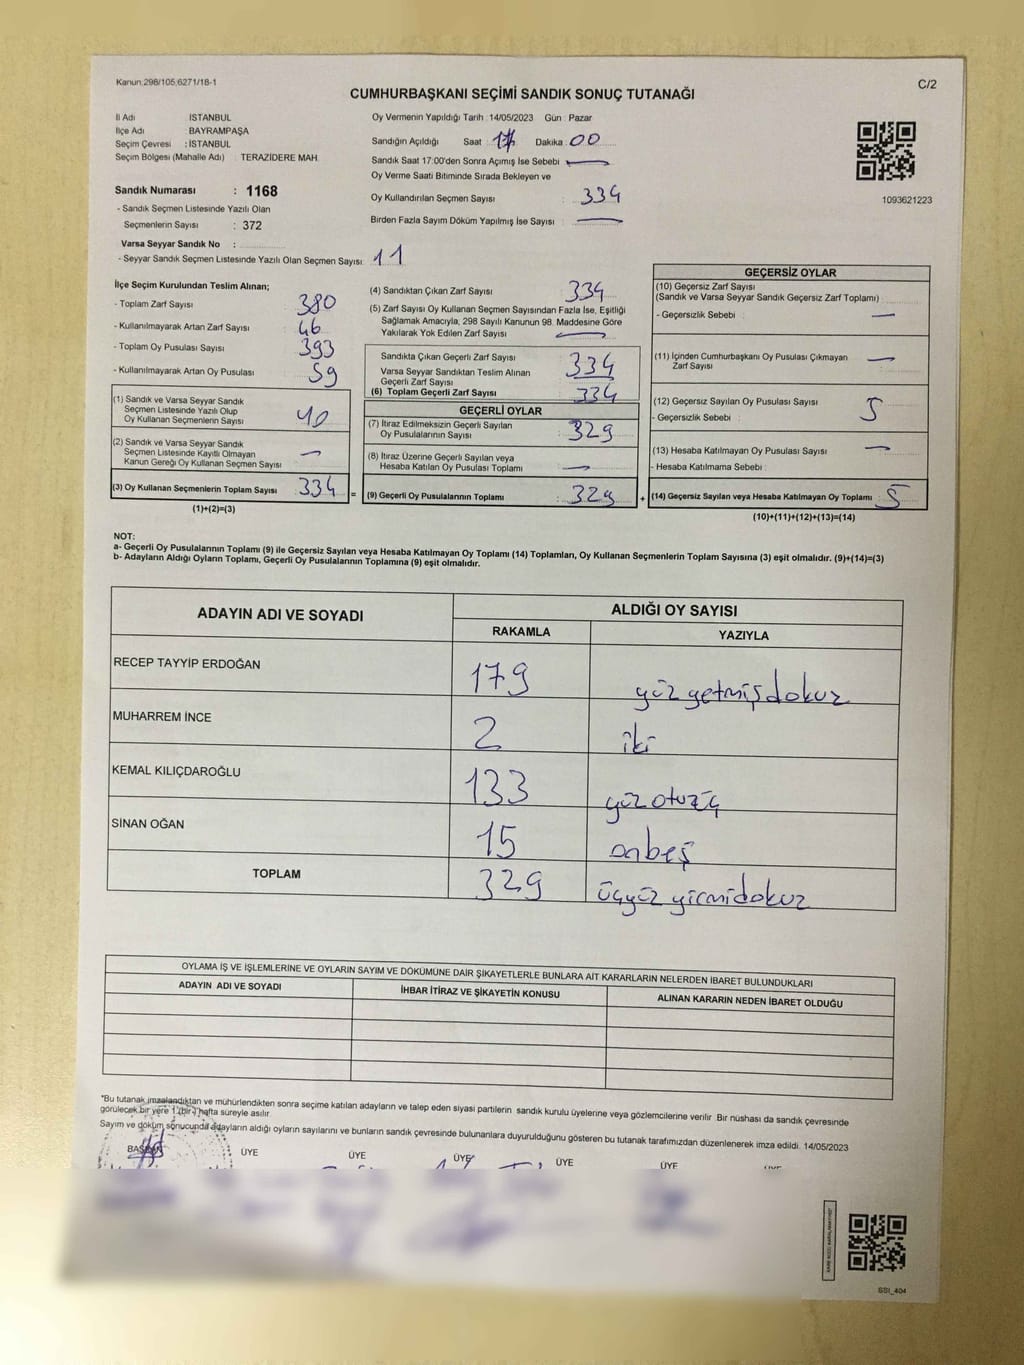 Kanun.298/105,6271/18-1
C/2
CUMHURBAŞKANI SEÇİMİ SANDIK SONUÇ TUTANAĞI
İl Adı İSTANBUL
İlçe Adı : BAYRAMPAŞA
Seçim Çevresi : İSTANBUL
Seçim Bölgesi (Mahalle Adı) TERAZİDERE MAH.
Oy Vermenin Yapıldığı Tarih : 14/05/2023 Gün : Pazar
Sandığın Açıldığı Saat : 17 Dakika : 00
Sandık Saat 17:00'den Sonra Açımış İse Sebebi : —
Oy Verme Saati Bitiminde Sırada Bekleyen ve
Oy Kullandırılan Seçmen Sayısı : 334
Birden Fazla Sayım Döküm Yapılmış İse Sayısı : —
1093621223
Sandık Numarası : 1168
- Sandık Seçmen Listesinde Yazılı Olan
Seçmenlerin Sayısı : 372
Varsa Seyyar Sandık No :
- Seyyar Sandık Seçmen Listesinde Yazılı Olan Seçmen Sayısı: 11
İlçe Seçim Kurulundan Teslim Alınan;
- Toplam Zarf Sayısı 380
- Kullanılmayarak Artan Zarf Sayısı : 46
- Toplam Oy Pusulası Sayısı : 393
- Kullanılmayarak Artan Oy Pusulası : 59
(1) Sandık ve Varsa Seyyar Sandık
Seçmen Listesinde Yazılı Olup
Oy Kullanan Seçmenlerin Sayısı : 40
(2) Sandık ve Varsa Seyyar Sandık
Seçmen Listesinde Kayıtlı Olmayan
Kanun Gereği Oy Kullanan Seçmen Sayısı : —
(3) Oy Kullanan Seçmenlerin Toplam Sayısı : 334
(1)+(2)=(3)
(4) Sandıktan Çıkan Zarf Sayısı : 334
(5) Zarf Sayısı Oy Kullanan Seçmen Sayısından Fazla İse, Eşitliği
Sağlamak Amacıyla, 298 Sayılı Kanunun 98. Maddesine Göre
Yakılarak Yok Edilen Zarf Sayısı : —
Sandıkta Çıkan Geçerli Zarf Sayısı : 334
Varsa Seyyar Sandıktan Teslim Alınan
Geçerli Zarf Sayısı : —
(6) Toplam Geçerli Zarf Sayısı : 334
GEÇERLİ OYLAR
(7) İtiraz Edilmeksizin Geçerli Sayılan
Oy Pusulalarının Sayısı : 329
(8) İtiraz Üzerine Geçerli Sayılan veya
Hesaba Katılan Oy Pusulası Toplamı : —
= (9) Geçerli Oy Pusulalarının Toplamı : 329
GEÇERSİZ OYLAR
(10) Geçersiz Zarf Sayısı
(Sandık ve Varsa Seyyar Sandık Geçersiz Zarf Toplamı) :
- Geçersizlik Sebebi : —
(11) İçinden Cumhurbaşkanı Oy Pusulası Çıkmayan : —
Zarf Sayısı
(12) Geçersiz Sayılan Oy Pusulası Sayısı : 5
- Geçersizlik Sebebi :
(13) Hesaba Katılmayan Oy Pusulası Sayısı : —
- Hesaba Katılmama Sebebi :
+ (14) Geçersiz Sayılan veya Hesaba Katılmayan Oy Toplamı : 5
(10)+(11)+(12)+(13)=(14)
NOT:
a- Geçerli Oy Pusulalarının Toplamı (9) ile Geçersiz Sayılan veya Hesaba Katılmayan Oy Toplamı (14) Toplamları, Oy Kullanan Seçmenlerin Toplam Sayısına (3) eşit olmalıdır. (9)+(14)=(3)
b- Adayların Aldığı Oyların Toplamı, Geçerli Oy Pusulalarının Toplamına (9) eşit olmalıdır.
ADAYIN ADI VE SOYADI ALDIĞI OY SAYISI
RAKAMLA YAZIYLA
RECEP TAYYİP ERDOĞAN 179 yüz yetmiş dokuz
MUHARREM İNCE 2 iki
KEMAL KILIÇDAROĞLU 133 yüz otuz üç
SİNAN OĞAN 15 onbeş
TOPLAM 329 üçyüz yirmidokuz
OYLAMA İŞ VE İŞLEMLERİNE VE OYLARIN SAYIM VE DÖKÜMÜNE DAİR ŞİKAYETLERLE BUNLARA AİT KARARLARIN NELERDEN İBARET BULUNDUKLARI
ADAYIN ADI VE SOYADI İHBAR İTİRAZ VE ŞİKAYETİN KONUSU ALINAN KARARIN NEDEN İBARET OLDUĞU
*Bu tutanak imzalandıktan ve mühürlendikten sonra seçime katılan adayların ve talep eden siyasi partilerin sandık kurulu üyelerine veya gözlemcilerine verilir. Bir nüshası da sandık çevresinde
görülecek bir yere 1 (bir) hafta süreyle asılır.
Sayım ve döküm sonucunda adayların aldığı oyların sayılarını ve bunların sandık çevresinde bulunanlara duyurulduğunu gösteren bu tutanak tarafımızdan düzenlenerek imza edildi. 14/05/2023
BAŞKAN ÜYE ÜYE ÜYE ÜYE ÜYE
SSI_404